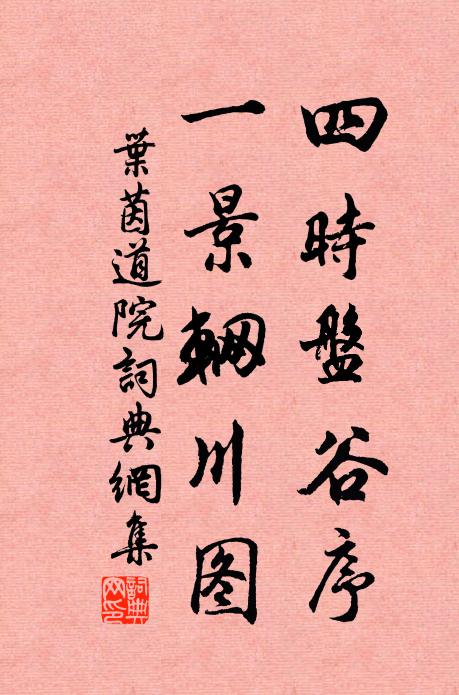 四時盤谷序
一景輞川图
葉茵道院詞典網集
詞典网印